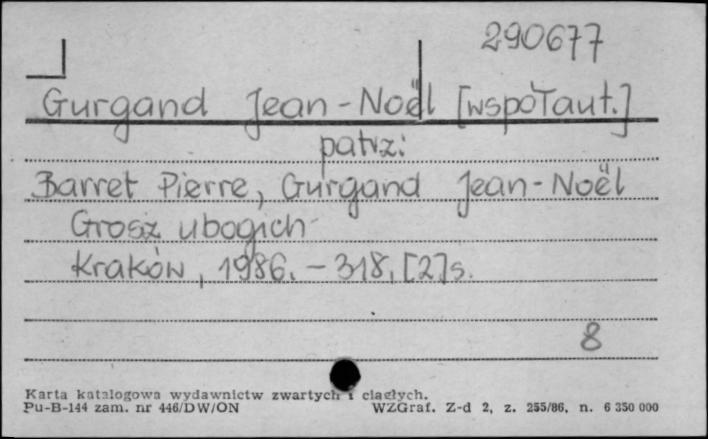 290677
Gurgand Jean-Noël [wspołaut.]
patrz:
Barret Pierre, Gurgand Jean-Noël
Grosz ubogich
Kraków, 1986. – 318, [2] s.
8
Karta katalogowa wydawnictw zwartych i ciągłych.
Pu-B-144 zam. nr 446/DW/ON WZGraf. Z-d 2, z. 255/86, n. 6 350 000